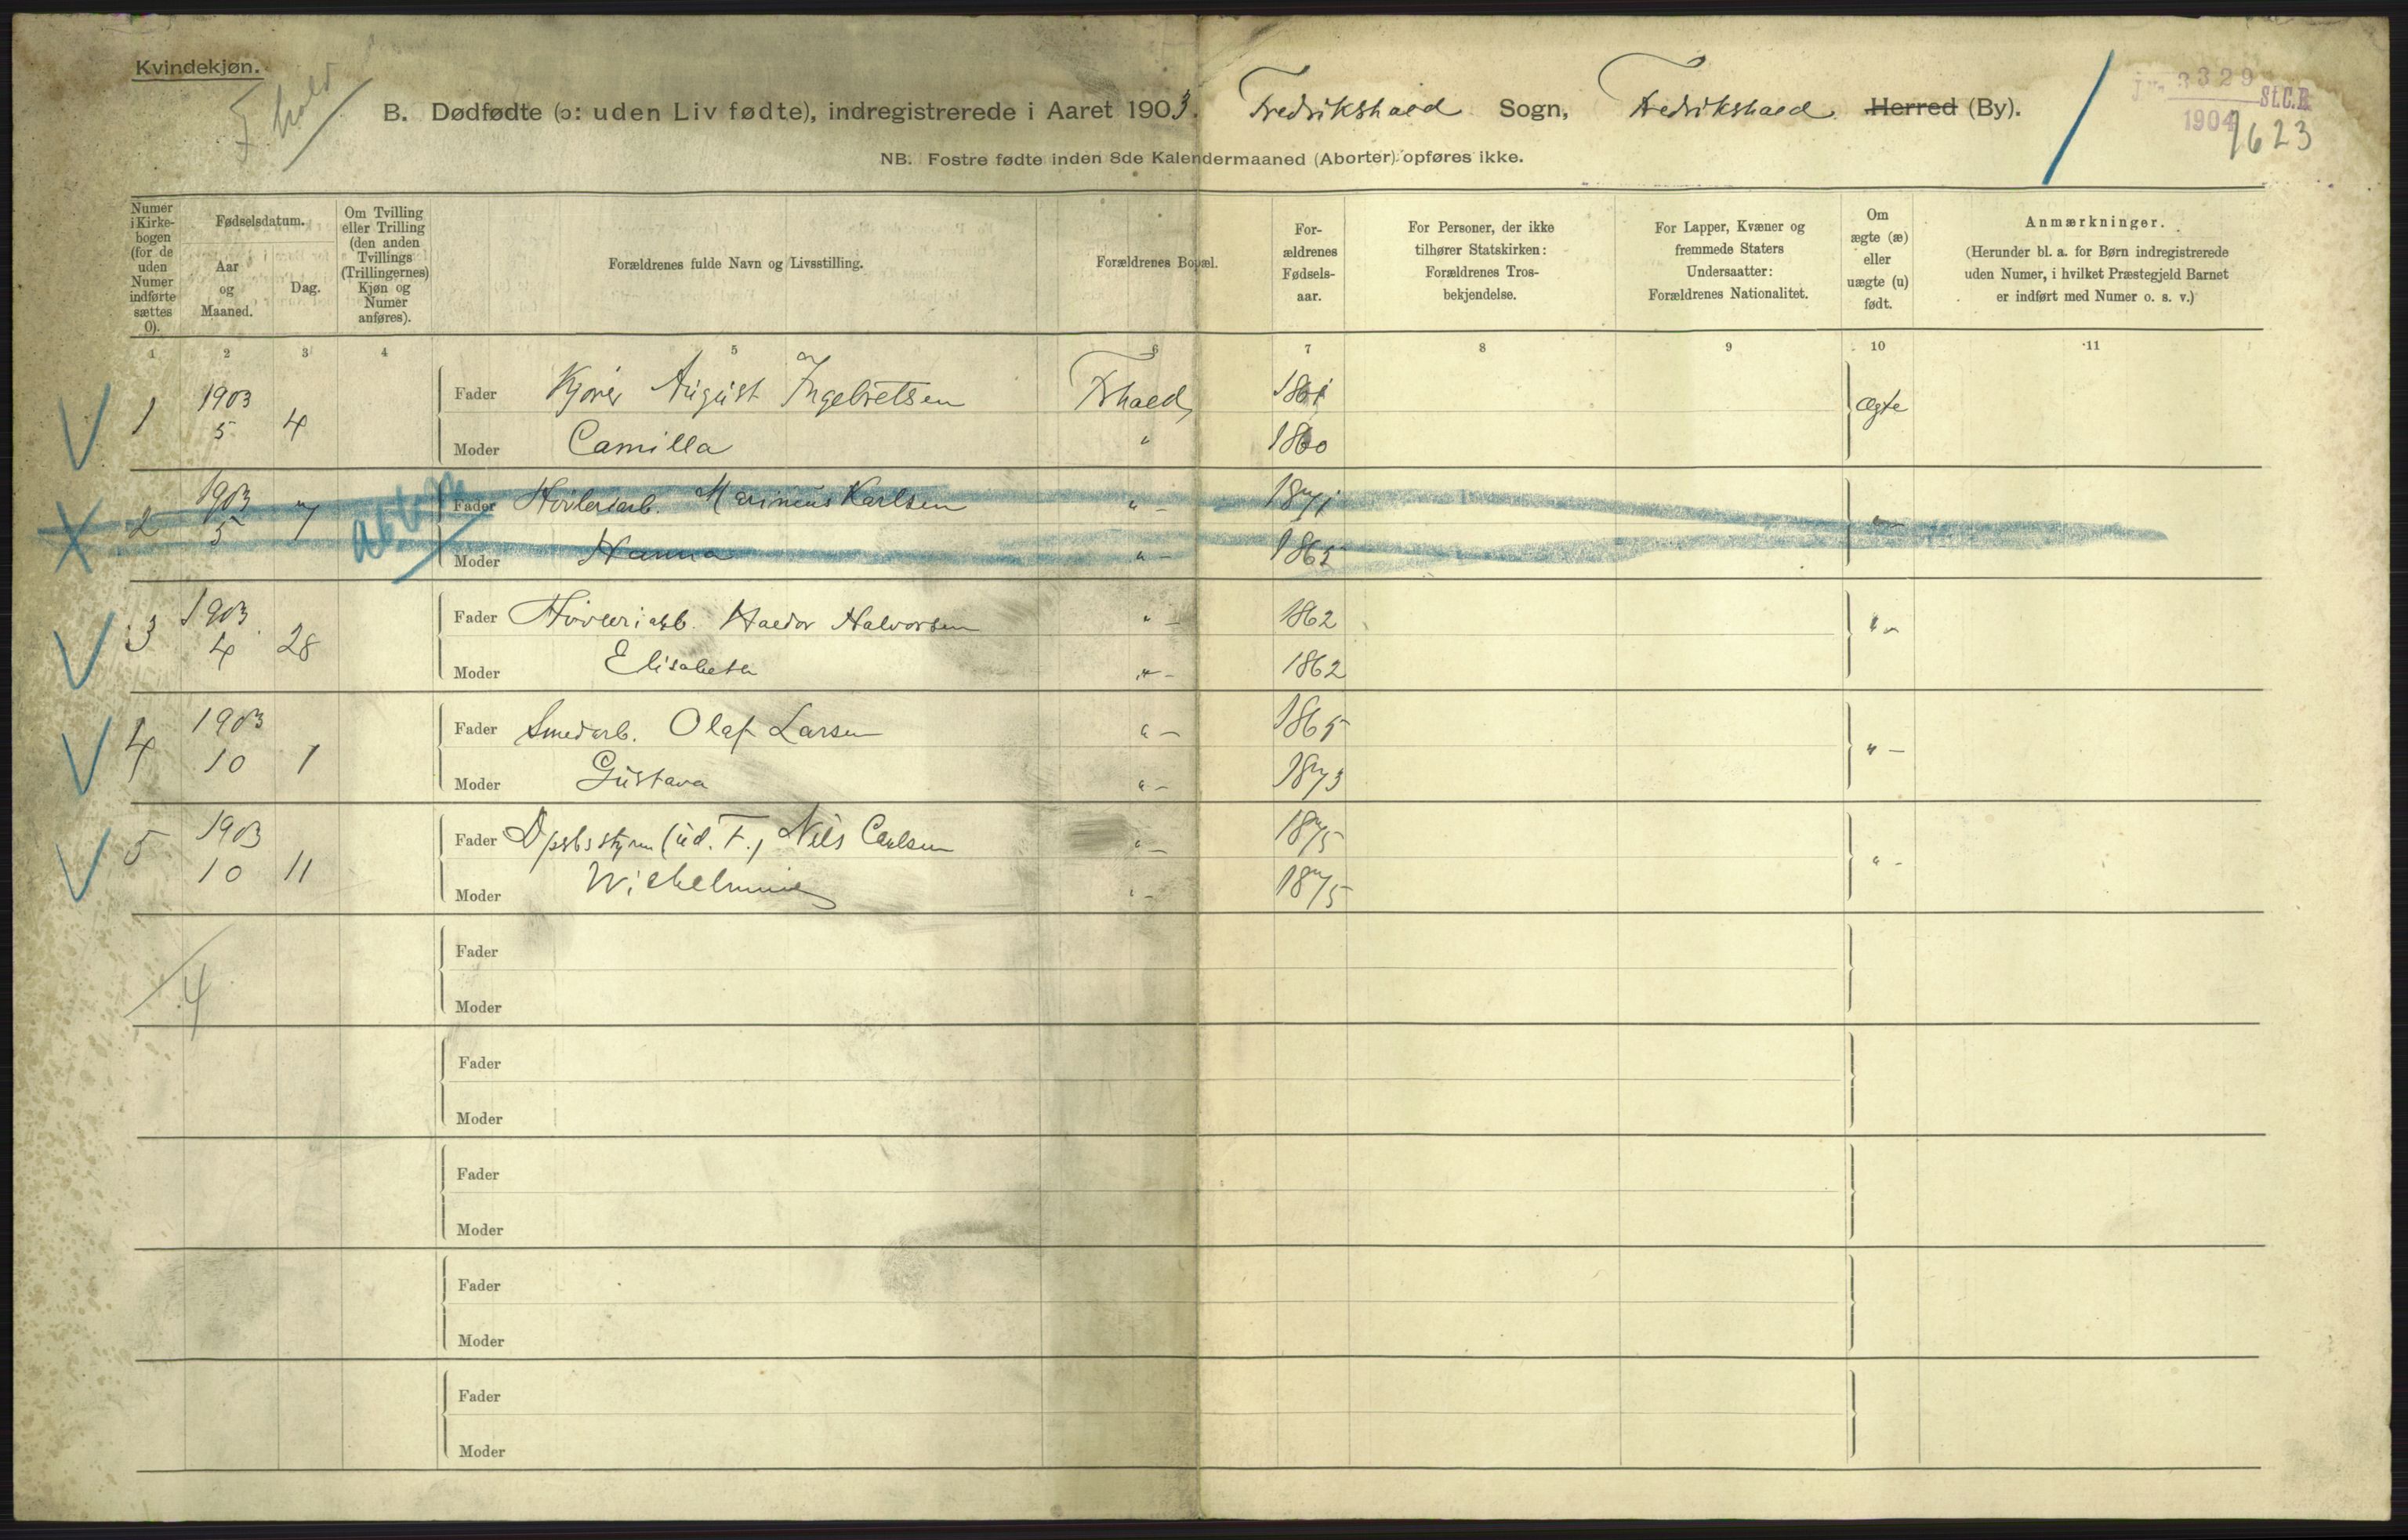 Kvindekjøn.
F.hald
B. Dødfødte (ɔ: uden Liv fødte), indregistrerede i Aaret 1903. Fredrikshald Sogn, Fredrikshald Herred (By).
Jn. 3329 St.C.B.
1904
1623
NB. Fostre fødte inden 8de Kalendermaaned (Aborter) opføres ikke.
Numer i Kirkebogen (for de uden Numer indførte sættes 0).
Fødselsdatum.
Aar og Maaned.
Dag.
Om Tvilling eller Trilling (den anden Tvillings (Trillingernes) Kjøn og Numer anføres).
Forældrenes fulde Navn og Livsstilling.
Forældrenes Bopæl.
Forældrenes Fødselsaar.
For Personer, der ikke tilhører Statskirken: Forældrenes Trosbekjendelse.
For Lapper, Kvæner og fremmede Staters Undersaatter: Forældrenes Nationalitet.
Om ægte (æ) eller uægte (u) født.
Anmærkninger. (Herunder bl. a. for Børn indregistrerede uden Numer, i hvilket Præstegjeld Barnet er indført med Numer o. s. v.)
1 2 3 4 5 6 7 8 9 10 11
1 1903 5 4 Fader Kjører August Ingebretsen Frhald 1861 Ægte
Moder Camilla " 1860
2 1903 5 7 Fader Høvleriarb. Marinius Karlsen " - 1871 " -
Moder Hanna " - 1865
3 1903 4 28 Fader Høvleriarb. Haldor Halvorsen " - 1862 " -
Moder Elisabeth " - 1862
4 1903 10 1 Fader Smedarb. Olaf Larsen " - 1865 " -
Moder Gustava " - 1873
5 1903 10 11 Fader Dpsbsstyrm (ud. F.) Nils Carlsen " - 1875 " -
Moder Wilhelmine " - 1875
4
Fader
Moder
Fader
Moder
Fader
Moder
Fader
Moder
Fader
Moder